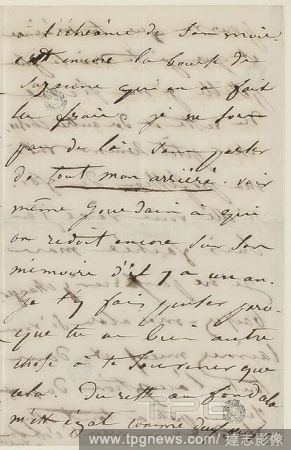 à l'échéance de Son mois.
c'est encore la bourse de
Suzanne qui en a fait
les frais, je ne son
pas de loi, sans parler
de tout mon arriéré. voir
même Gourdain à qui
on redoit encore sur son
mémoire d'il y a un an.
Je t'y fais penser parce
que tu as bien autre
chose à te souvenir que
cela. Du reste
m'est égal comme
TPG
www.tpgnews.com / 達志影像